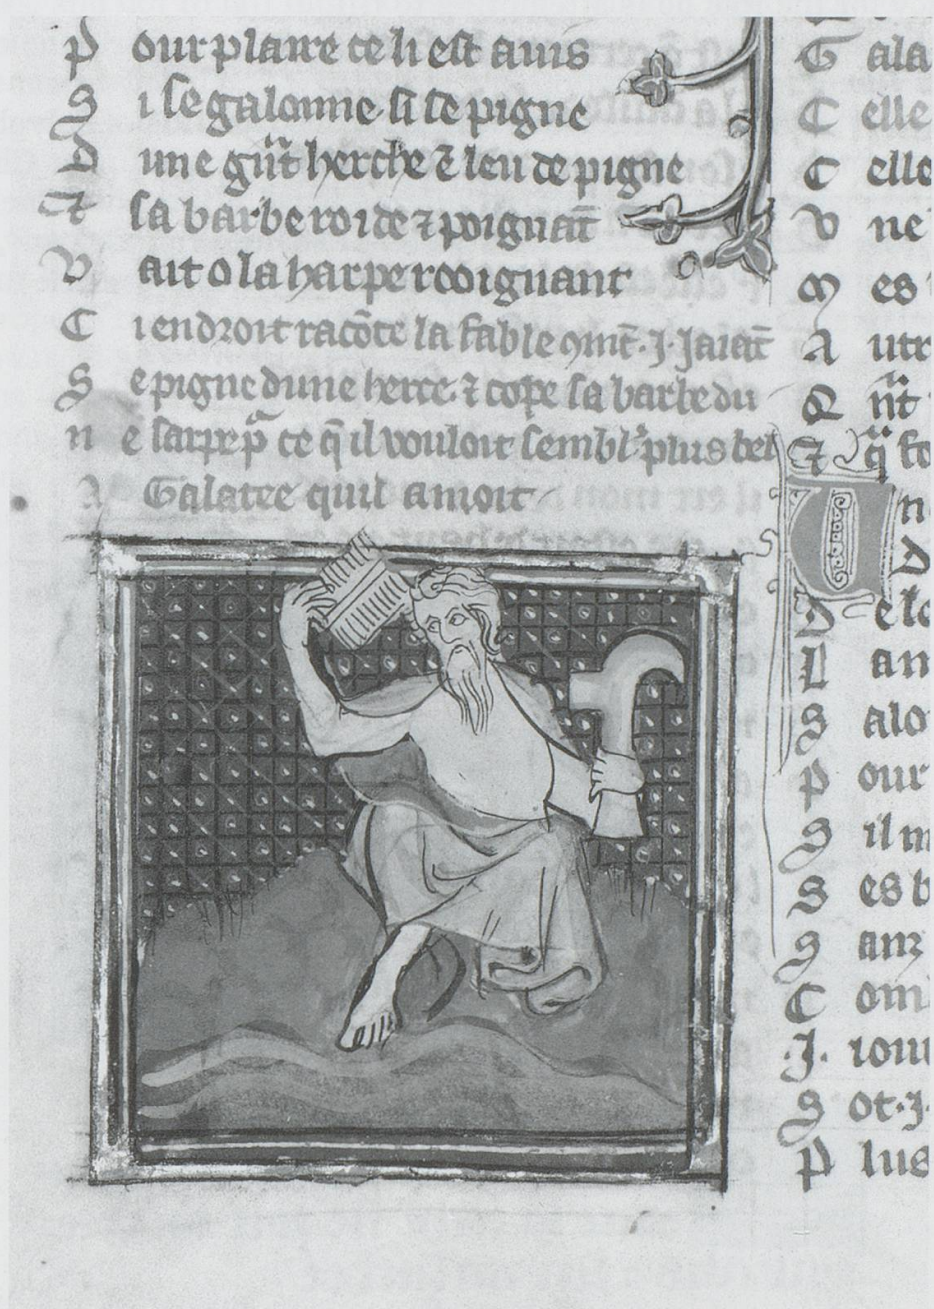 P our plaire ce li est auis
S i se galonne. si se pigne
D une gñt herche ē leu de pigne
Et sa barbe roide ⁊ poignāt
V ait o la harpe rooignant
C i endroit racōte la fable ꝯmt̄ .j. jaiāt
S e pigne dune herce. ⁊ cope sa barbe du
n e sarpe p̄ ce q̄ il vouloit sembl' plus bel
A Galatee quil amoit
G ala
C elle
C elle
V ne
M es
A utr
Q n̄t
Et q̄
U n
D
D e
L an
S alo
P our
S il
S es b
S anz
C om
.J. iou
S ot .j.
P lus